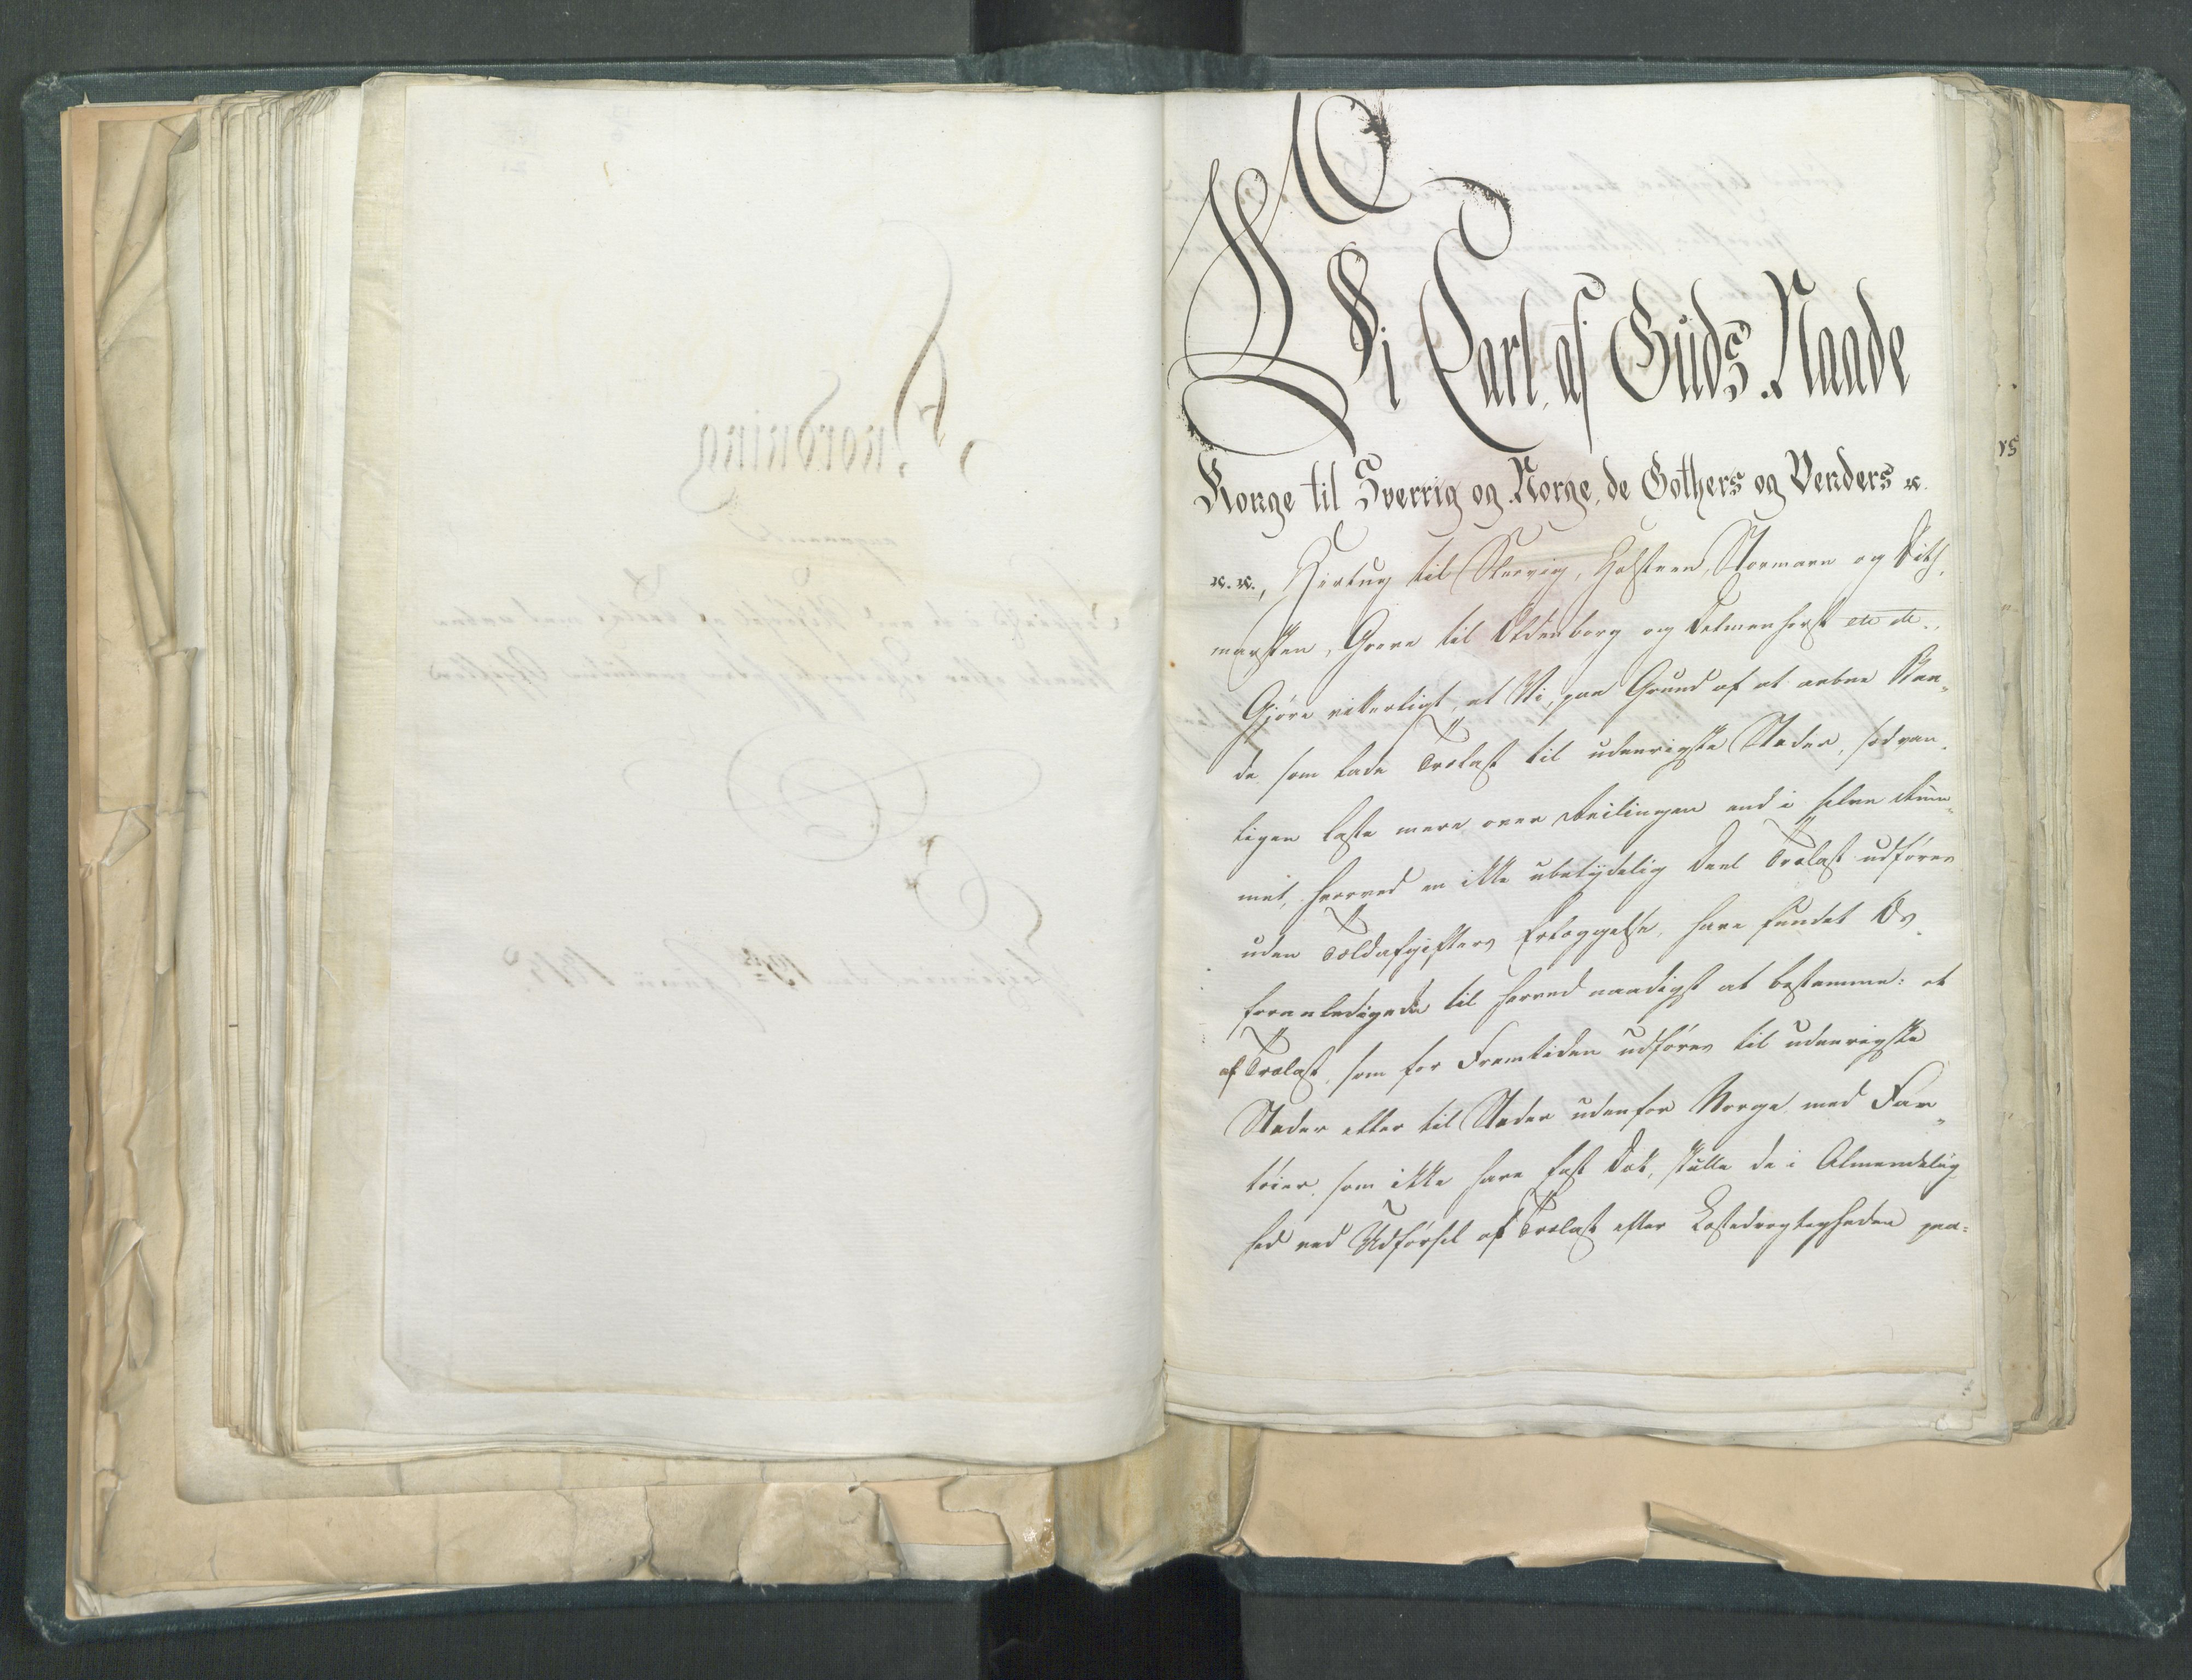 Vi Carl, af Guds Naade
Konge til Sverrig og Norge, de Gothers og Venders &c.
&c. &c., Hertug til Slesvig, Holsteen, Stormarn og Dith-
marsken, Greve til Oldenborg og Delmenhorst etc etc.,
Gjøre vitterligt, at Vi, paa Grund af at aabne Baa-
de som lade Trælast til udenrigske Steder, sædvan-
ligen laste mere over Beilingen end i selve Rum-
met, hvorved en ikke ubetydelig Deel Trælast udføres
uden Toldafgifters Erlæggelse, have fundet Os
foranledigede til herved naadigst at bestemme: at
af Trælast, som for Fremtiden udføres til udenrigske
Steder eller til Steder udenfor Norge med Far-
tøier, som ikke have fast Dæk, skulle de i Almindelig-
hed ved Udførsel af Trælast efter Læstedrægtigheden paa-